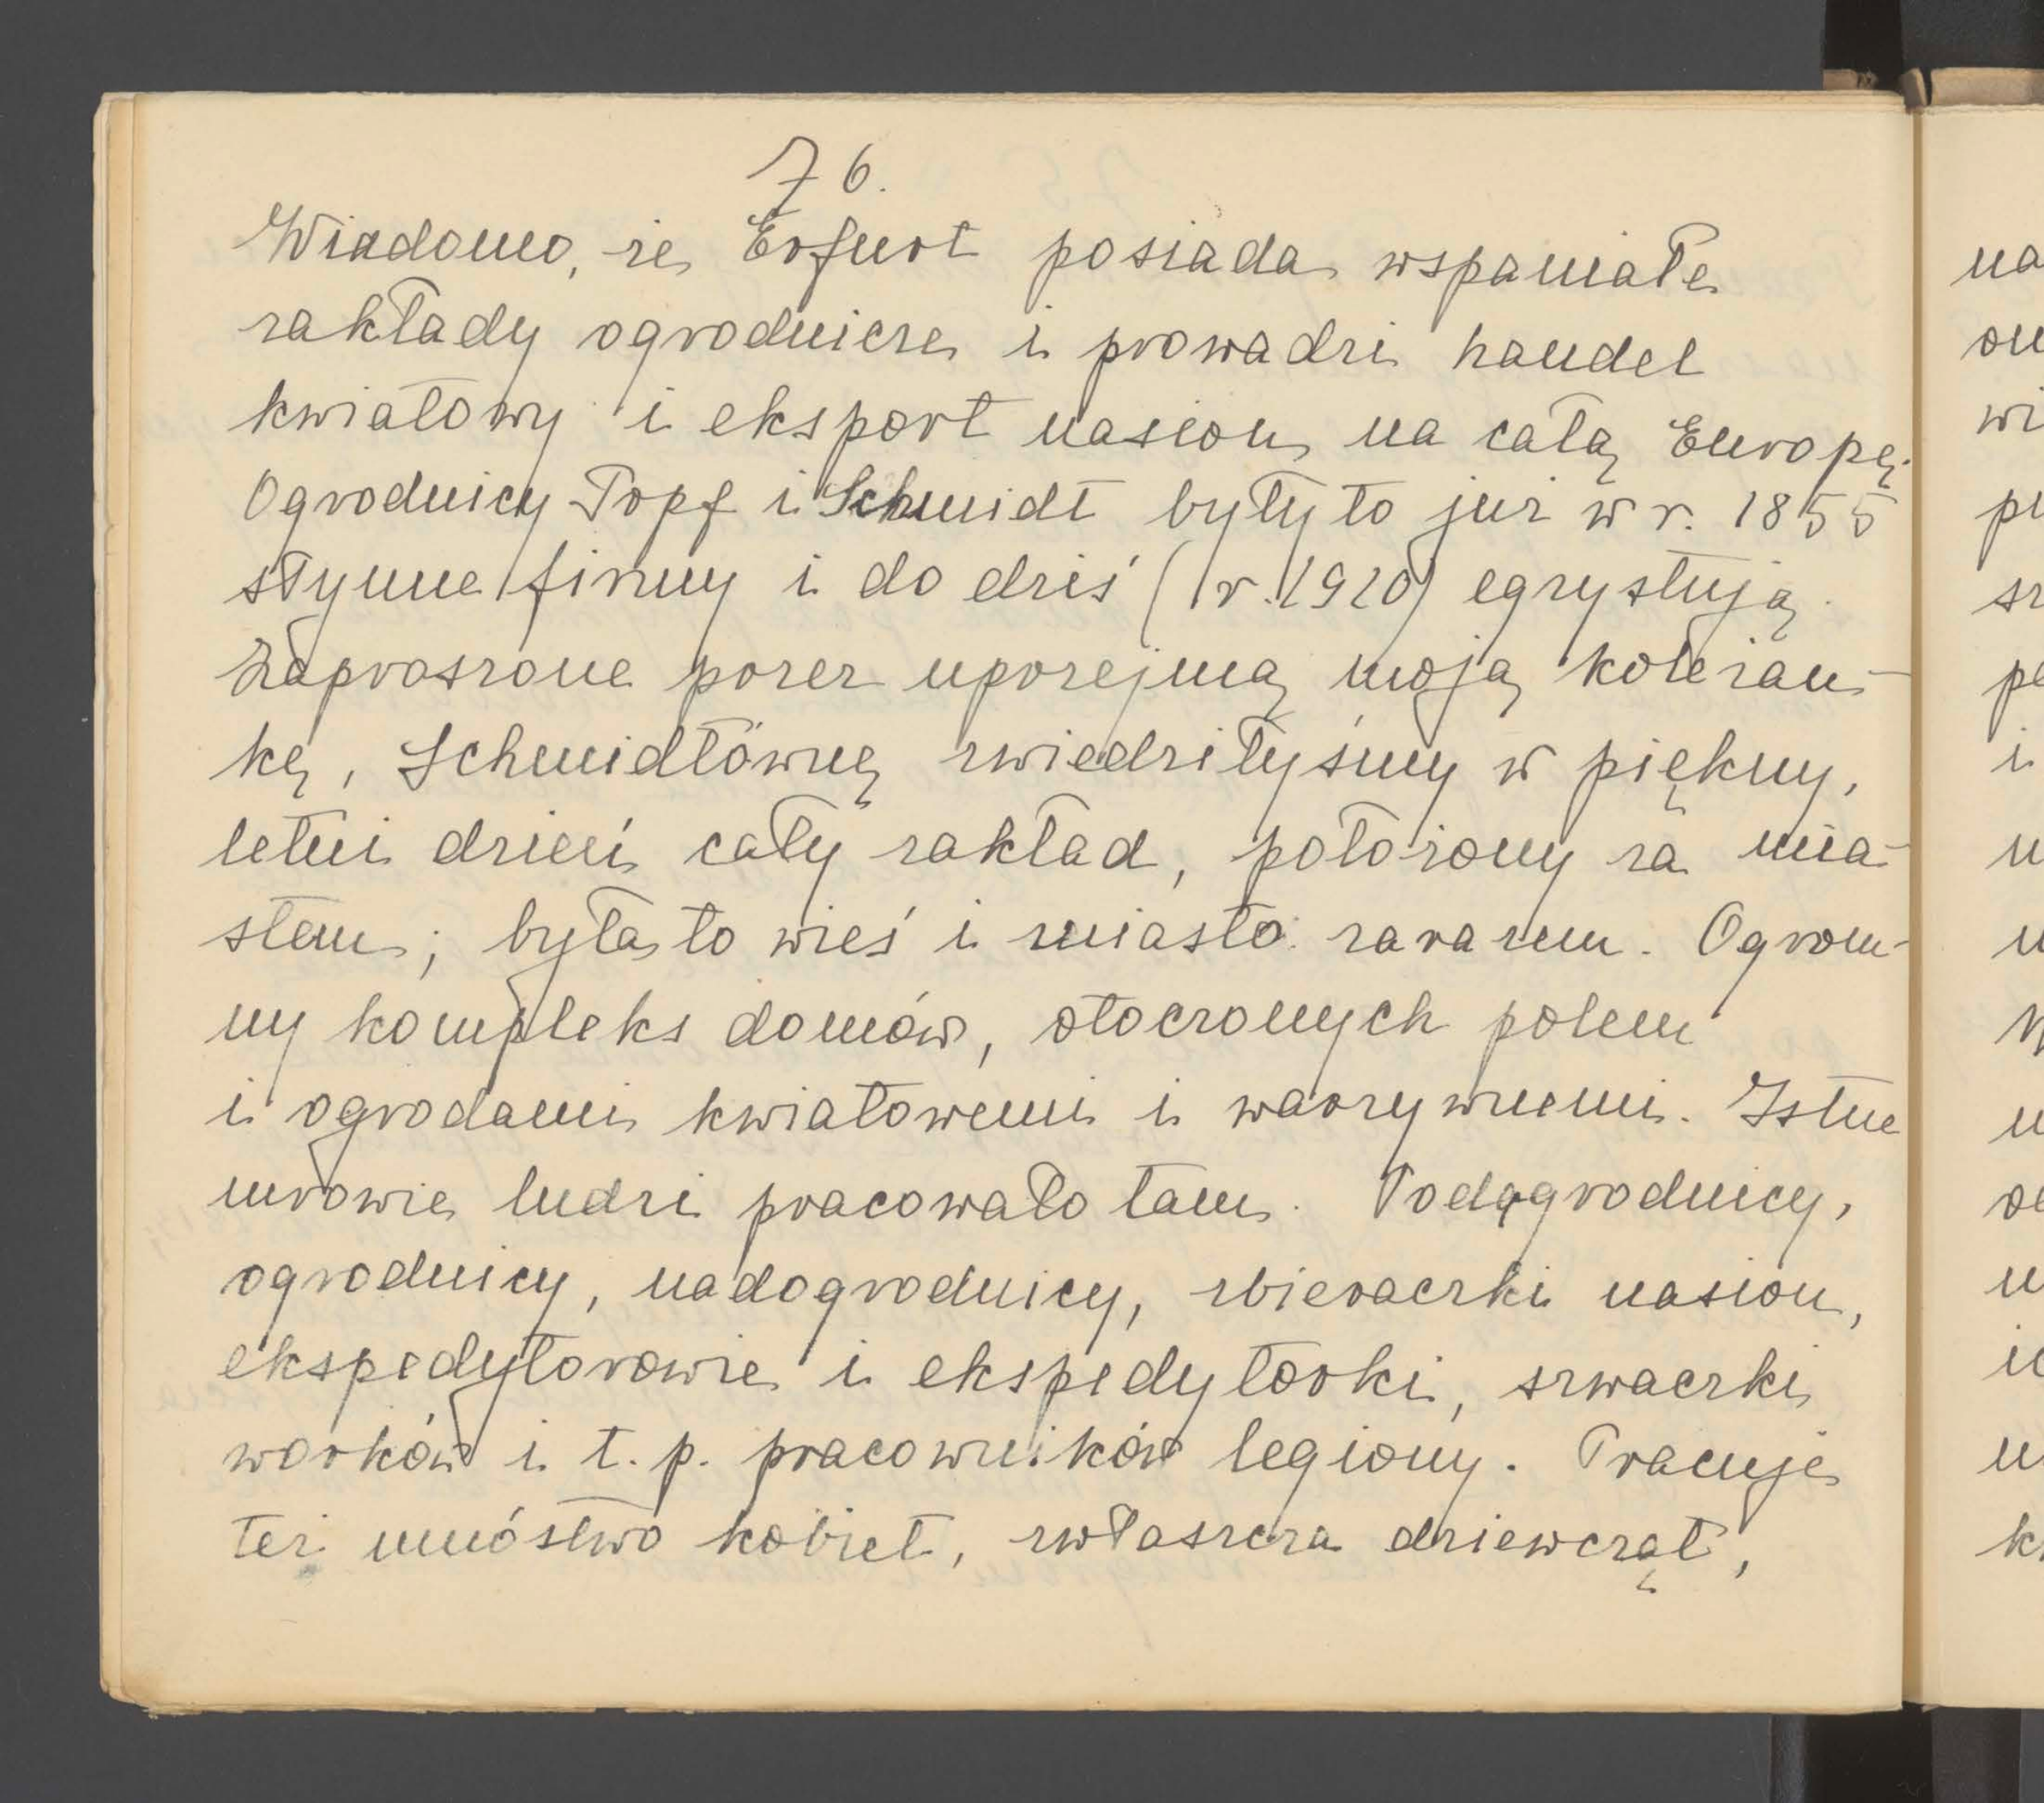 76.
Wiadomo, że Erfurt posiada wspaniałe
zakłady ogrodnicze i prowadzi handel
kwiatowy i eksport nasion na całą Europę.
Ogrodnicy Topf i Schmidt były to już w r. 1855
słynne firmy i do dziś (r. 1910) egzystują.
Zaproszone przez uprzejmą moją koleżan-
kę, Schmidtównę zwiedziłyśmy w piękny,
letni dzień cały zakład, położony za mia-
stem; była to wieś i miasto zarazem. Ogrom-
ny kompleks domów, otoczonych polem
i ogrodami kwiatowemi i warzywnemi. Istne
mrowie ludzi pracowało tam. Podogrodnicy,
ogrodnicy, nadogrodnicy, zbieraczki nasion,
ekspedytorowie i ekspedytorki, szwaczki
worków i t. p. pracowników legiony. Pracuje
też mnóstwo kobiet, zwłaszcza dziewcząt,
na
wi
k